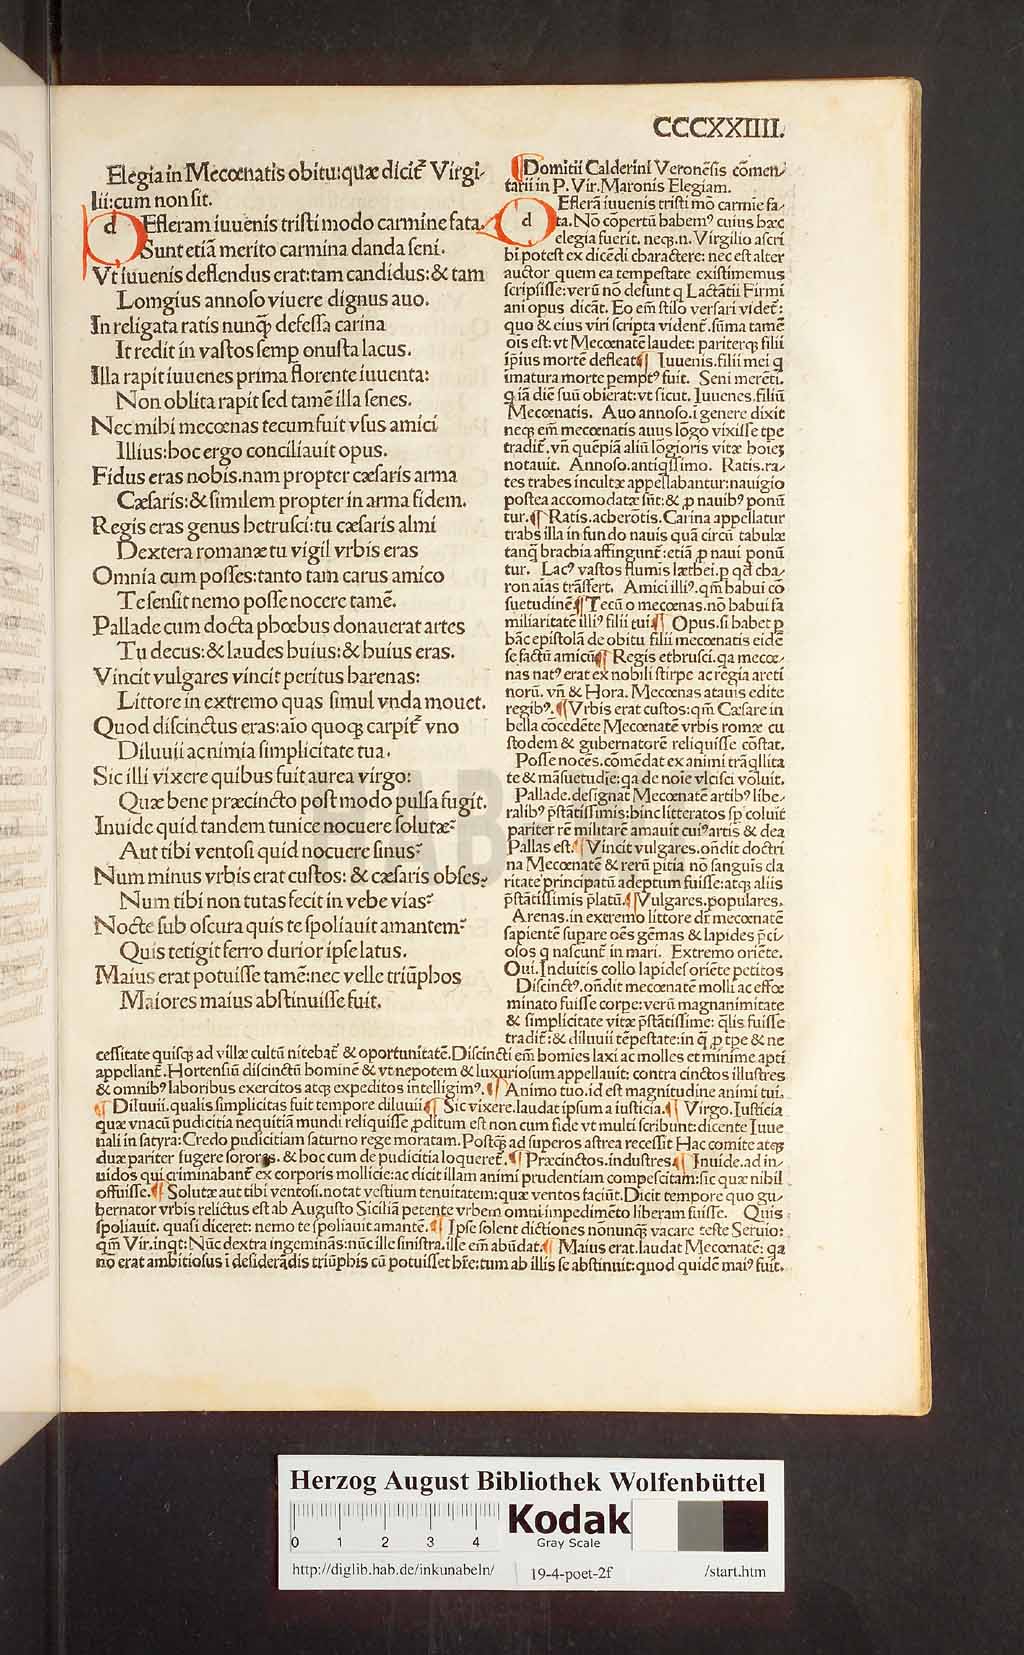 CCCXXIIII.
Elegia in Mecœnatis obitu: quæ dicit̃ Virgi-
lii: cum non sit.
dEfleram iuuenis tristi modo carmine fata.
Sunt etiã merito carmina danda seni.
Vt iuuenis deflendus erat: tam candidus: & tam
Lomgius annoso viuere dignus auo.
In religata ratis nunq̃ defessa carina
It redit in vastos semp onusta lacus.
Illa rapit iuuenes prima florente iuuenta:
Non oblita rapit sed tamẽ illa senes.
Nec mihi mecœnas tecum fuit vsus amici
Illius: hoc ergo conciliauit opus.
Fidus eras nobis. nam propter cæsaris arma
Cæsaris: & similem propter in arma fidem.
Regis eras genus hetrusci: tu cæsaris almi
Dextera romanæ tu vigil vrbis eras
Omnia cum posses: tanto tam carus amico
Te sensit nemo posse nocere tamẽ.
Pallade cum docta phœbus donauerat artes
Tu decus: & laudes huius: & huius eras.
Vincit vulgares vincit peritus harenas:
Littore in extremo quas simul vnda mouet.
Quod discinctus eras: aĩo quoq; carpit̃ vno
Diluuii ac nimia simplicitate tua.
Sic illi vixere quibus fuit aurea virgo:
Quæ bene præcincto post modo pulsa fugit.
Inuide quid tandem tunice nocuere solutæ?
Aut tibi ventosi quid nocuere sinus?
Num minus vrbis erat custos: & cæsaris obses?
Num tibi non tutas fecit in vebe vias?
Nocte sub oscura quis te spoliauit amantem?
Quis tetigit ferro durior ipse latus.
Maius erat potuisse tamẽ: nec velle triũphos
Maiores maius abstinuisse fuit.
¶Domitii Calderini Veronẽsis cõmen-
tarii in P. Vir. Maronis Elegiam.
dEflerã iuuenis tristi mõ carmĩe fa-
ta. Nõ cõpertũ habemꝰ cuius hæc
elegia fuerit. neq;.n. Virgilio ascri
bi potest ex dicẽdi charactere: nec est alter
auctor quem ea tempestate existimemus
scripsisse: verũ nõ desunt q Lactãtii Firmi
ani opus dicãt. Eo em̃ stilo versari videt̃:
quo & eius viri scripta vident̃. sũma tamẽ
ois est: vt Mecœnatẽ laudet: pariterq; filii
ip̃ius mortẽ defleat¶ Iuuenis. filii mei q
imatura morte pemptꝰ fuit. Seni merẽti.
q iã diẽ suũ obierat: vt sicut. Iuuenes. filiũ
Mecœnatis. Auo annoso. i genere dixit
neq; em̃ mecœnatis auus lõgo vixisse tp̃e
tradit̃. vñ quẽpiã aliũ lõgioris vitæ hoĩe;
notauit. Annoso. antiq̃ssimo. Ratis. ra-
tes trabes incultæ appellabantur: nauigio
postea accomodatæ sũt: & ꝓ nauibꝰ ponũ
tur.¶ Ratis. acherõtis. Carina appellatur
trabs illa in fundo nauis quã circũ tabulæ
tanq̃ brachia affingunt̃: etiã ꝓ naui ponũ
tur. Lacꝰ vastos flumis læthei. p qd̃ cha-
ron aĩas trãsfert. Amici illiꝰ. qm̃ habui cõ
suetudinẽ¶Tecũ o mecœnas. nõ habui fa
miliaritatẽ illiꝰ filii tui¶ Opus. si habet p
hãc epistolã de obitu filii mecœnatis eidẽ
se factũ amicũ¶ Regis ethrusci. qa mecœ-
nas natꝰ erat ex nobili stirpe ac regia areti
norũ. vñ & Hora. Mecœnas atauis edite
regibꝰ.¶Vrbis erat custos: qm̃ Cæsare in
bella cõcedẽte Mecœnatẽ vrbis romæ cu
stodem & gubernatorẽ reliquisse cõstat.
Posse nocẽs. cõmẽdat ex animi trãq̃llita
te & mãsuetudĩe: qa de noĩe vlcisci voluit.
Pallade. designat̃ Mecœnatẽ artibꝰ libe-
ralibꝰ p̃stãtissimis: hinc litteratos sp̃ coluit
pariter rẽ militarẽ amauit cuiꝰ artis & dea
Pallas est.¶Vincit vulgares. oñdit doctri
na Mecœnatẽ & rerũ pitia nõ sanguis cla
ritate principatũ adeptum fuisse: atq; aliis
p̃stãtissimis platũ.¶Vulgares. populares.
Arenas. in extremo littore dr̃ mecœnatẽ
sapientẽ supare oẽs gẽmas & lapides p̃ci-
osos q nascunt̃ in mari. Extremo oriẽte.
Oui. Induitis collo lapides oriẽte petitos
Discinctꝰ. oñdit mecœnatẽ molli ac effœ
minato fuisse corpe: verũ magnanimitate
& simplicitate vitæ p̃stãtissime: q̃lis fuisse
tradit̃: & diluuii tẽpestate: in q̃ ꝓ tp̃e & ne
cessitate quisq; ad villæ cultũ nitebat̃ & oportunitatẽ. Discincti em̃ homies laxi ac molles et minime apti
appellant̃. Hortensiũ discinctũ hominẽ & vt nepotem & luxuriosum appellauit: contra cinctos illustres
& omnibꝰ laboribus exercitos atq; expeditos intelligimꝰ.¶ Animo tuo. id est magnitudine animi tui.
¶ Diluuii. qualis simplicitas fuit tempore diluuii¶ Sic vixere. laudat ipsum a iusticia.¶ Virgo. Iusticia
quæ vnacũ pudicitia nequitiã mundi reliquisse ꝓditum est non cum fide vt multi scribunt: dicente Iuue
nali in satyra: Credo pudicitiam saturno rege moratam. Postq̃ ad superos astrea recessit Hac comite atq;
duæ pariter fugere sorores. & hoc cum de pudicitia loqueret̃.¶ Præcinctos. industres¶ Inuide. ad in-
uidos qui criminabant̃ ex corporis mollicie: ac dicit illam animi prudentiam compescitam: sic quæ nihil
offuisse.¶ Solutæ aut tibi ventosi. notat vestium tenuitatem: quæ ventos faciũt. Dicit tempore quo gu-
bernator vrbis relictus est ab Augusto Siciliã petente vrbem omni impedimẽto liberam fuisse. Quis
spoliauit. quasi diceret: nemo te spoliauit amantẽ.¶ Ipse solent dictiones nonunq̃ vacare teste Seruio:
qm̃ Vir. inqt: Nũc dextra ingeminãs: nũc ille sinistra. ille em̃ abũdat.¶ Maius erat. laudat Mecœnatẽ: qa
nõ erat ambitiosus i desiderãdis triũphis cũ potuisset hr̃e: tum ab illis se abstinuit: quod quidẽ maiꝰ fuit.
Herzog August Bibliothek Wolfenbüttel
0 1 2 3 4
Kodak
Gray Scale
http://diglib.hab.de/inkunabeln/ 19-4-poet-2f /start.htm